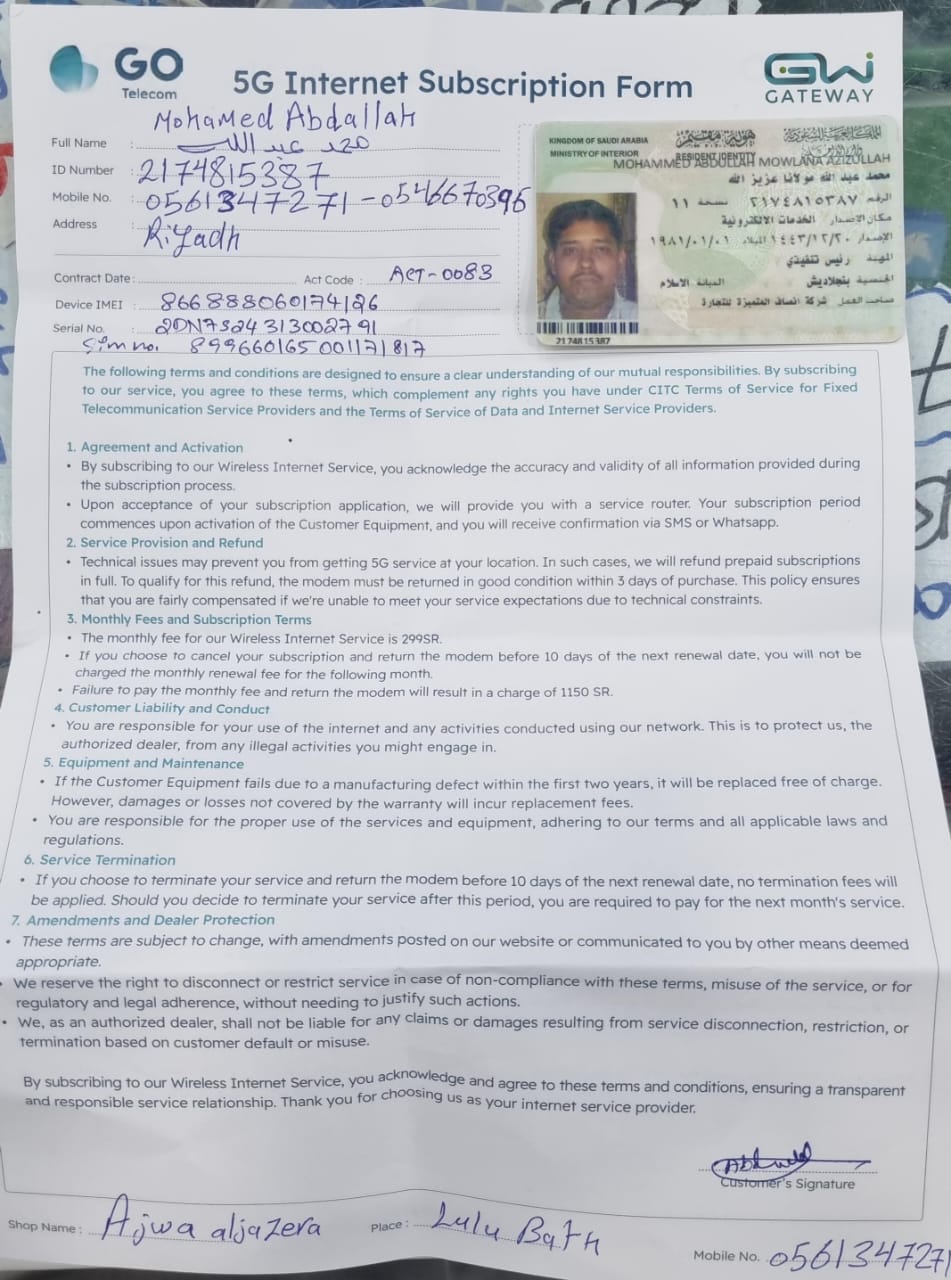 GO
Telecom
5G Internet Subscription Form
GW
GATEWAY
Mohamed Abdallah
Full Name :
محمد عبد الله
ID Number : 2174815387
Mobile No. : 0561347271 - 0546670396
Address : Riyadh
Contract Date : Act Code : ACT-0083
Device IMEI : 866888060174126
Serial No. : 2DN7S24313002791
Sim no. 899660165001171817
KINGDOM OF SAUDI ARABIA
MINISTRY OF INTERIOR
RESIDENT IDENTITY
هوية مقيم
المملكة العربية السعودية
وزارة الداخلية
MOHAMMED ABDULLAH MOWLANA AZIZULLAH
محمد عبد الله مولانا عزيز الله
الرقم ٢١٧٤٨١٥٣٨٧ نسخة ١١
مكان الاصدار الخدمات الالكترونية
الإصدار ١٤٤٣/١٢/٢٠ الميلاد ١٩٨١/٠١/٠١
المهنة رئيس تنفيذي
الجنسية بنجلاديش الديانة الاسلام
صاحب العمل شركة انصاف المتميزة للتجارة
2174815387
The following terms and conditions are designed to ensure a clear understanding of our mutual responsibilities. By subscribing
to our service, you agree to these terms, which complement any rights you have under CITC Terms of Service for Fixed
Telecommunication Service Providers and the Terms of Service of Data and Internet Service Providers.
1. Agreement and Activation
• By subscribing to our Wireless Internet Service, you acknowledge the accuracy and validity of all information provided during
the subscription process.
• Upon acceptance of your subscription application, we will provide you with a service router. Your subscription period
commences upon activation of the Customer Equipment, and you will receive confirmation via SMS or Whatsapp.
2. Service Provision and Refund
• Technical issues may prevent you from getting 5G service at your location. In such cases, we will refund prepaid subscriptions
in full. To qualify for this refund, the modem must be returned in good condition within 3 days of purchase. This policy ensures
that you are fairly compensated if we're unable to meet your service expectations due to technical constraints.
3. Monthly Fees and Subscription Terms
• The monthly fee for our Wireless Internet Service is 299SR.
• If you choose to cancel your subscription and return the modem before 10 days of the next renewal date, you will not be
charged the monthly renewal fee for the following month.
• Failure to pay the monthly fee and return the modem will result in a charge of 1150 SR.
4. Customer Liability and Conduct
• You are responsible for your use of the internet and any activities conducted using our network. This is to protect us, the
authorized dealer, from any illegal activities you might engage in.
5. Equipment and Maintenance
• If the Customer Equipment fails due to a manufacturing defect within the first two years, it will be replaced free of charge.
However, damages or losses not covered by the warranty will incur replacement fees.
• You are responsible for the proper use of the services and equipment, adhering to our terms and all applicable laws and
regulations.
6. Service Termination
• If you choose to terminate your service and return the modem before 10 days of the next renewal date, no termination fees will
be applied. Should you decide to terminate your service after this period, you are required to pay for the next month's service.
7. Amendments and Dealer Protection
• These terms are subject to change, with amendments posted on our website or communicated to you by other means deemed
appropriate.
• We reserve the right to disconnect or restrict service in case of non-compliance with these terms, misuse of the service, or for
regulatory and legal adherence, without needing to justify such actions.
• We, as an authorized dealer, shall not be liable for any claims or damages resulting from service disconnection, restriction, or
termination based on customer default or misuse.
By subscribing to our Wireless Internet Service, you acknowledge and agree to these terms and conditions, ensuring a transparent
and responsible service relationship. Thank you for choosing us as your internet service provider.
Customer's Signature
Shop Name : Ajwa aljazera Place : Lulu Bath
Mobile No. 0561347271